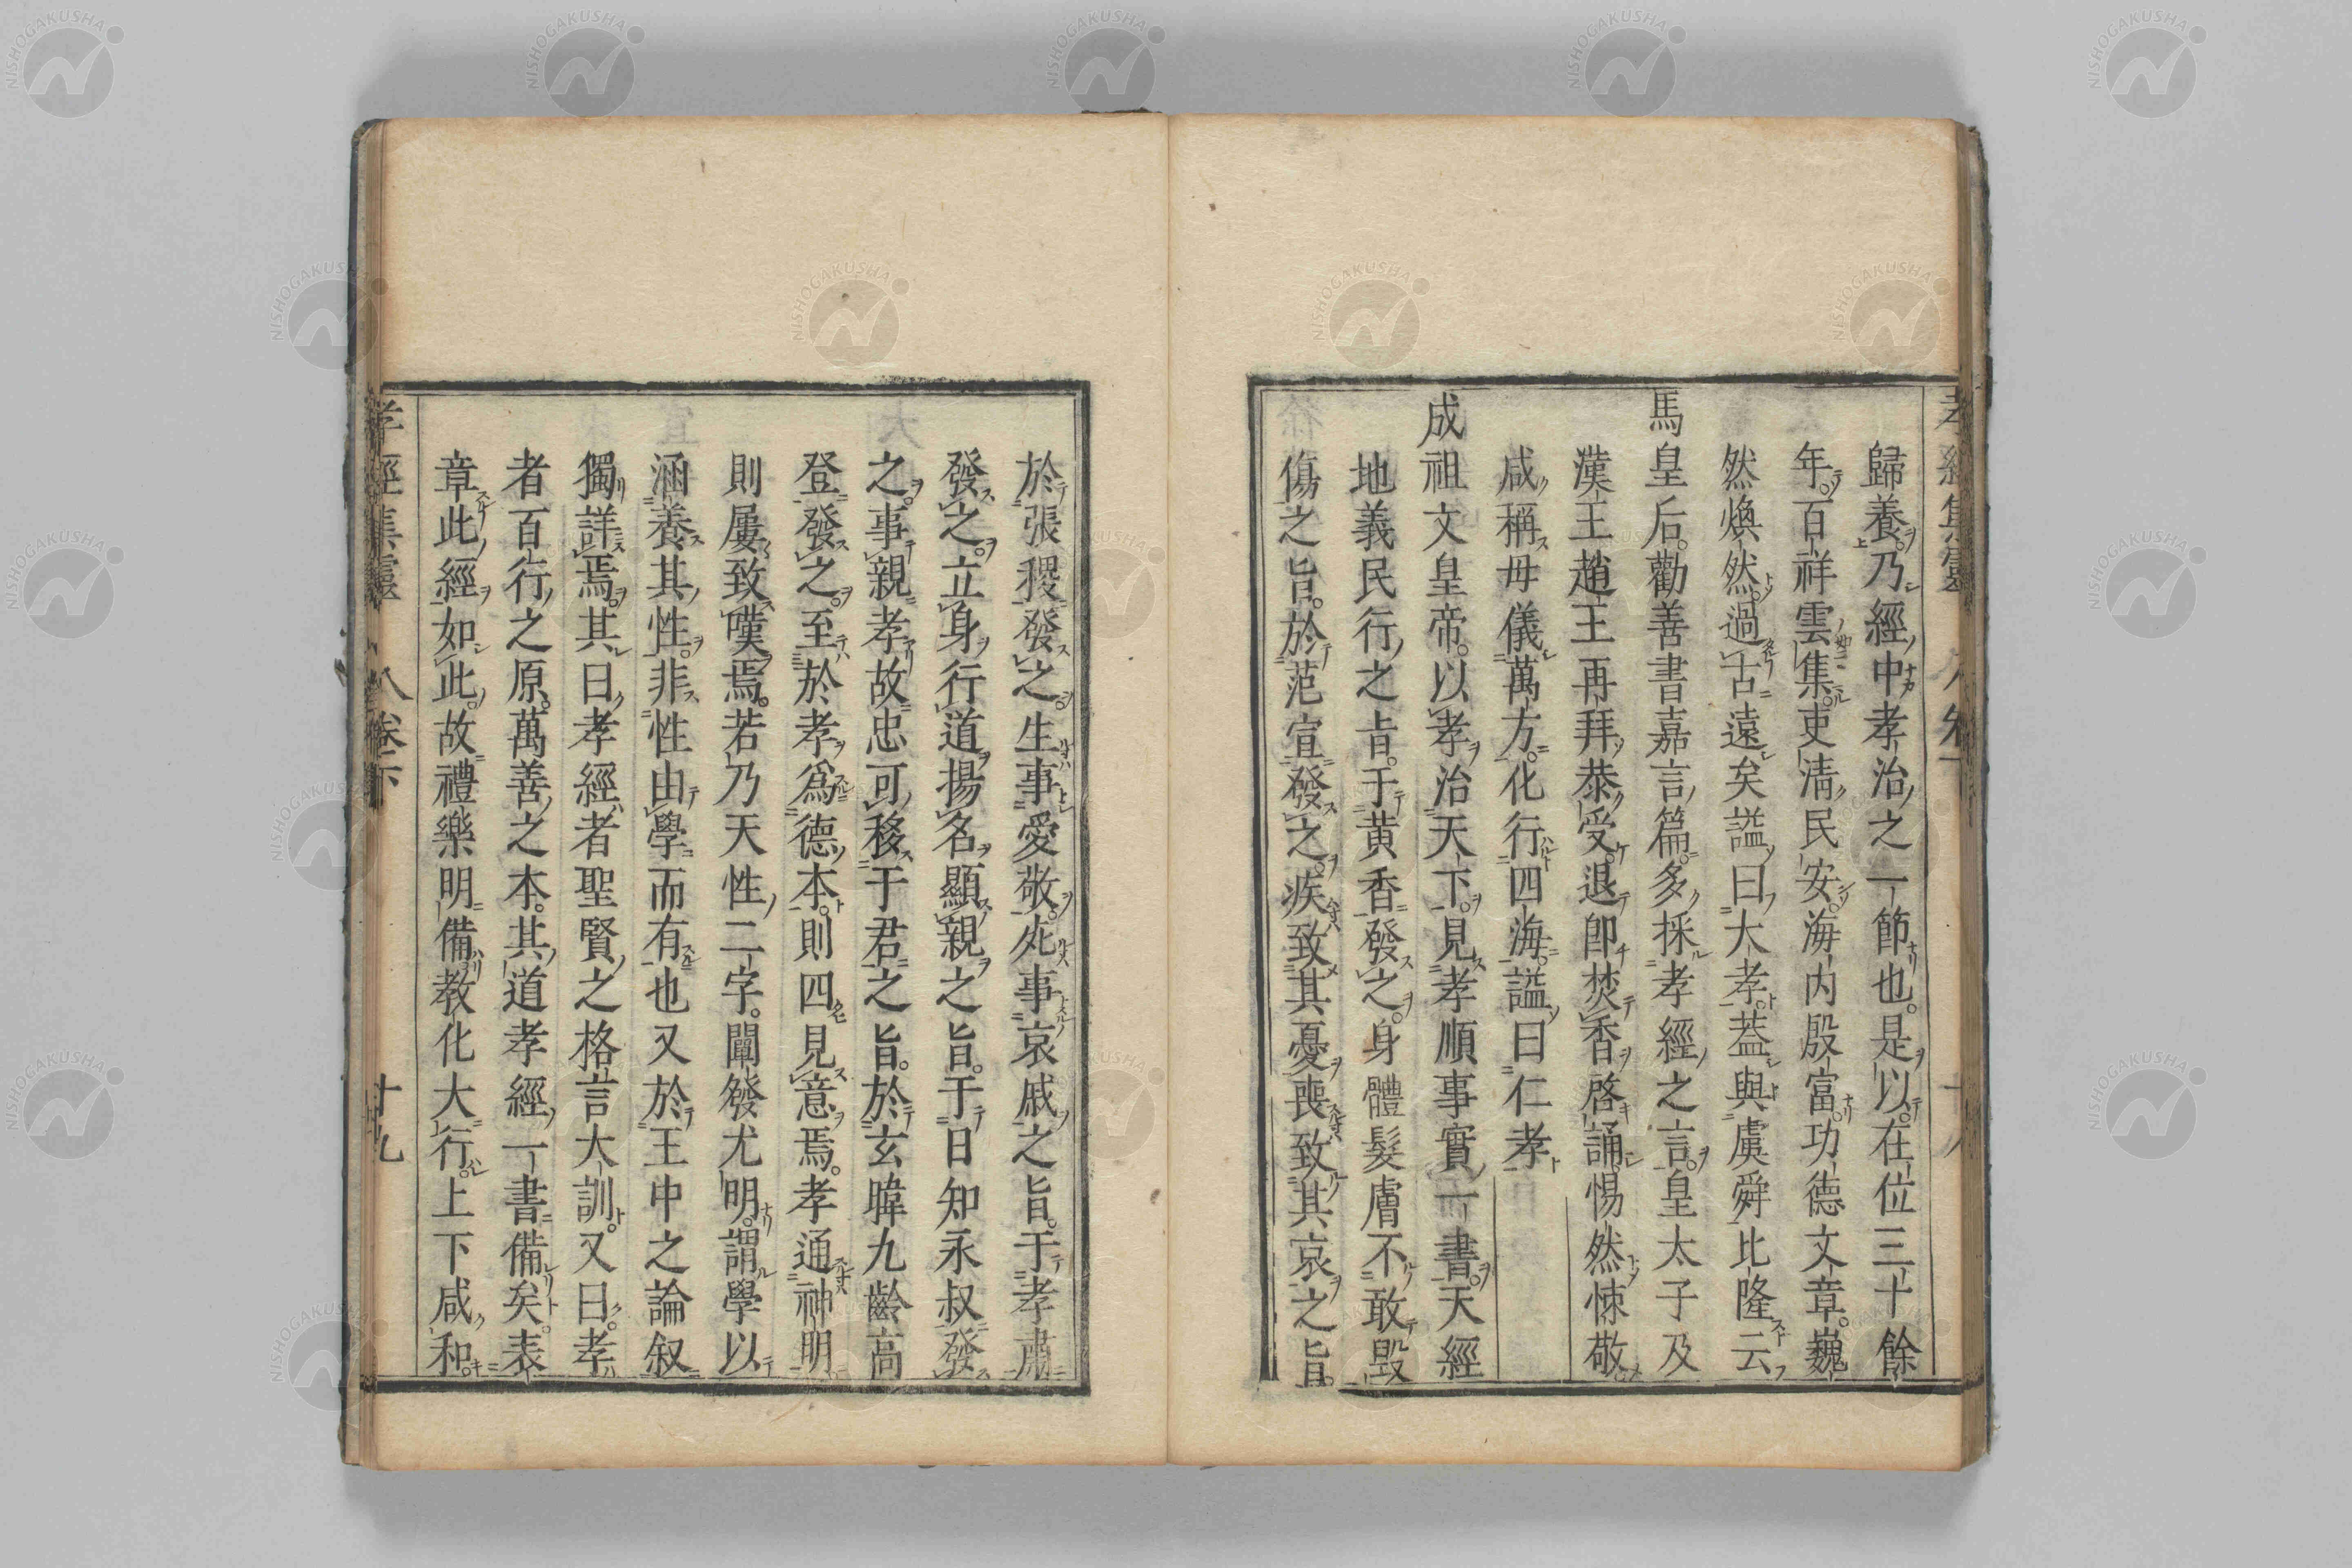 歸養乃經中孝治之一節也是以在位三十餘
年百祥雲集吏淸民安海內殷富功德文章巍
然煥然過古遠矣謚曰大孝蓋與虞舜比隆云
馬皇后勸善書嘉言篇多採孝經之言皇太子及
漢王趙王再拜恭受退卽焚香啓誦惕然悚敬
咸稱母儀萬方化行四海謚曰仁孝
成祖文皇帝以孝治天下見孝順事實一書天經
地義民行之旨于黃香發之身體髮膚不敢毀
傷之旨於范宣發之疾致其憂喪致其哀之旨
於張稷發之生事愛敬死事哀戚之旨于孝肅
發之立身行道揚名顯親之旨于日知永叔發
之事親孝故忠可移于君之旨於玄暐九齡高
登發之至於孝爲德本則四見意焉孝通神明
則屢致嘆焉若乃天性二字闡發尤明謂學以
涵養其性非性由學而有也又於王中之論叙
獨詳焉其曰孝經者聖賢之格言大訓又曰孝
者百行之原萬善之本其道孝經一書備矣表
章此經如此故禮樂明備教化大行上下咸和
孝經集靈 卷下 十九
NISHOGAKUSHA